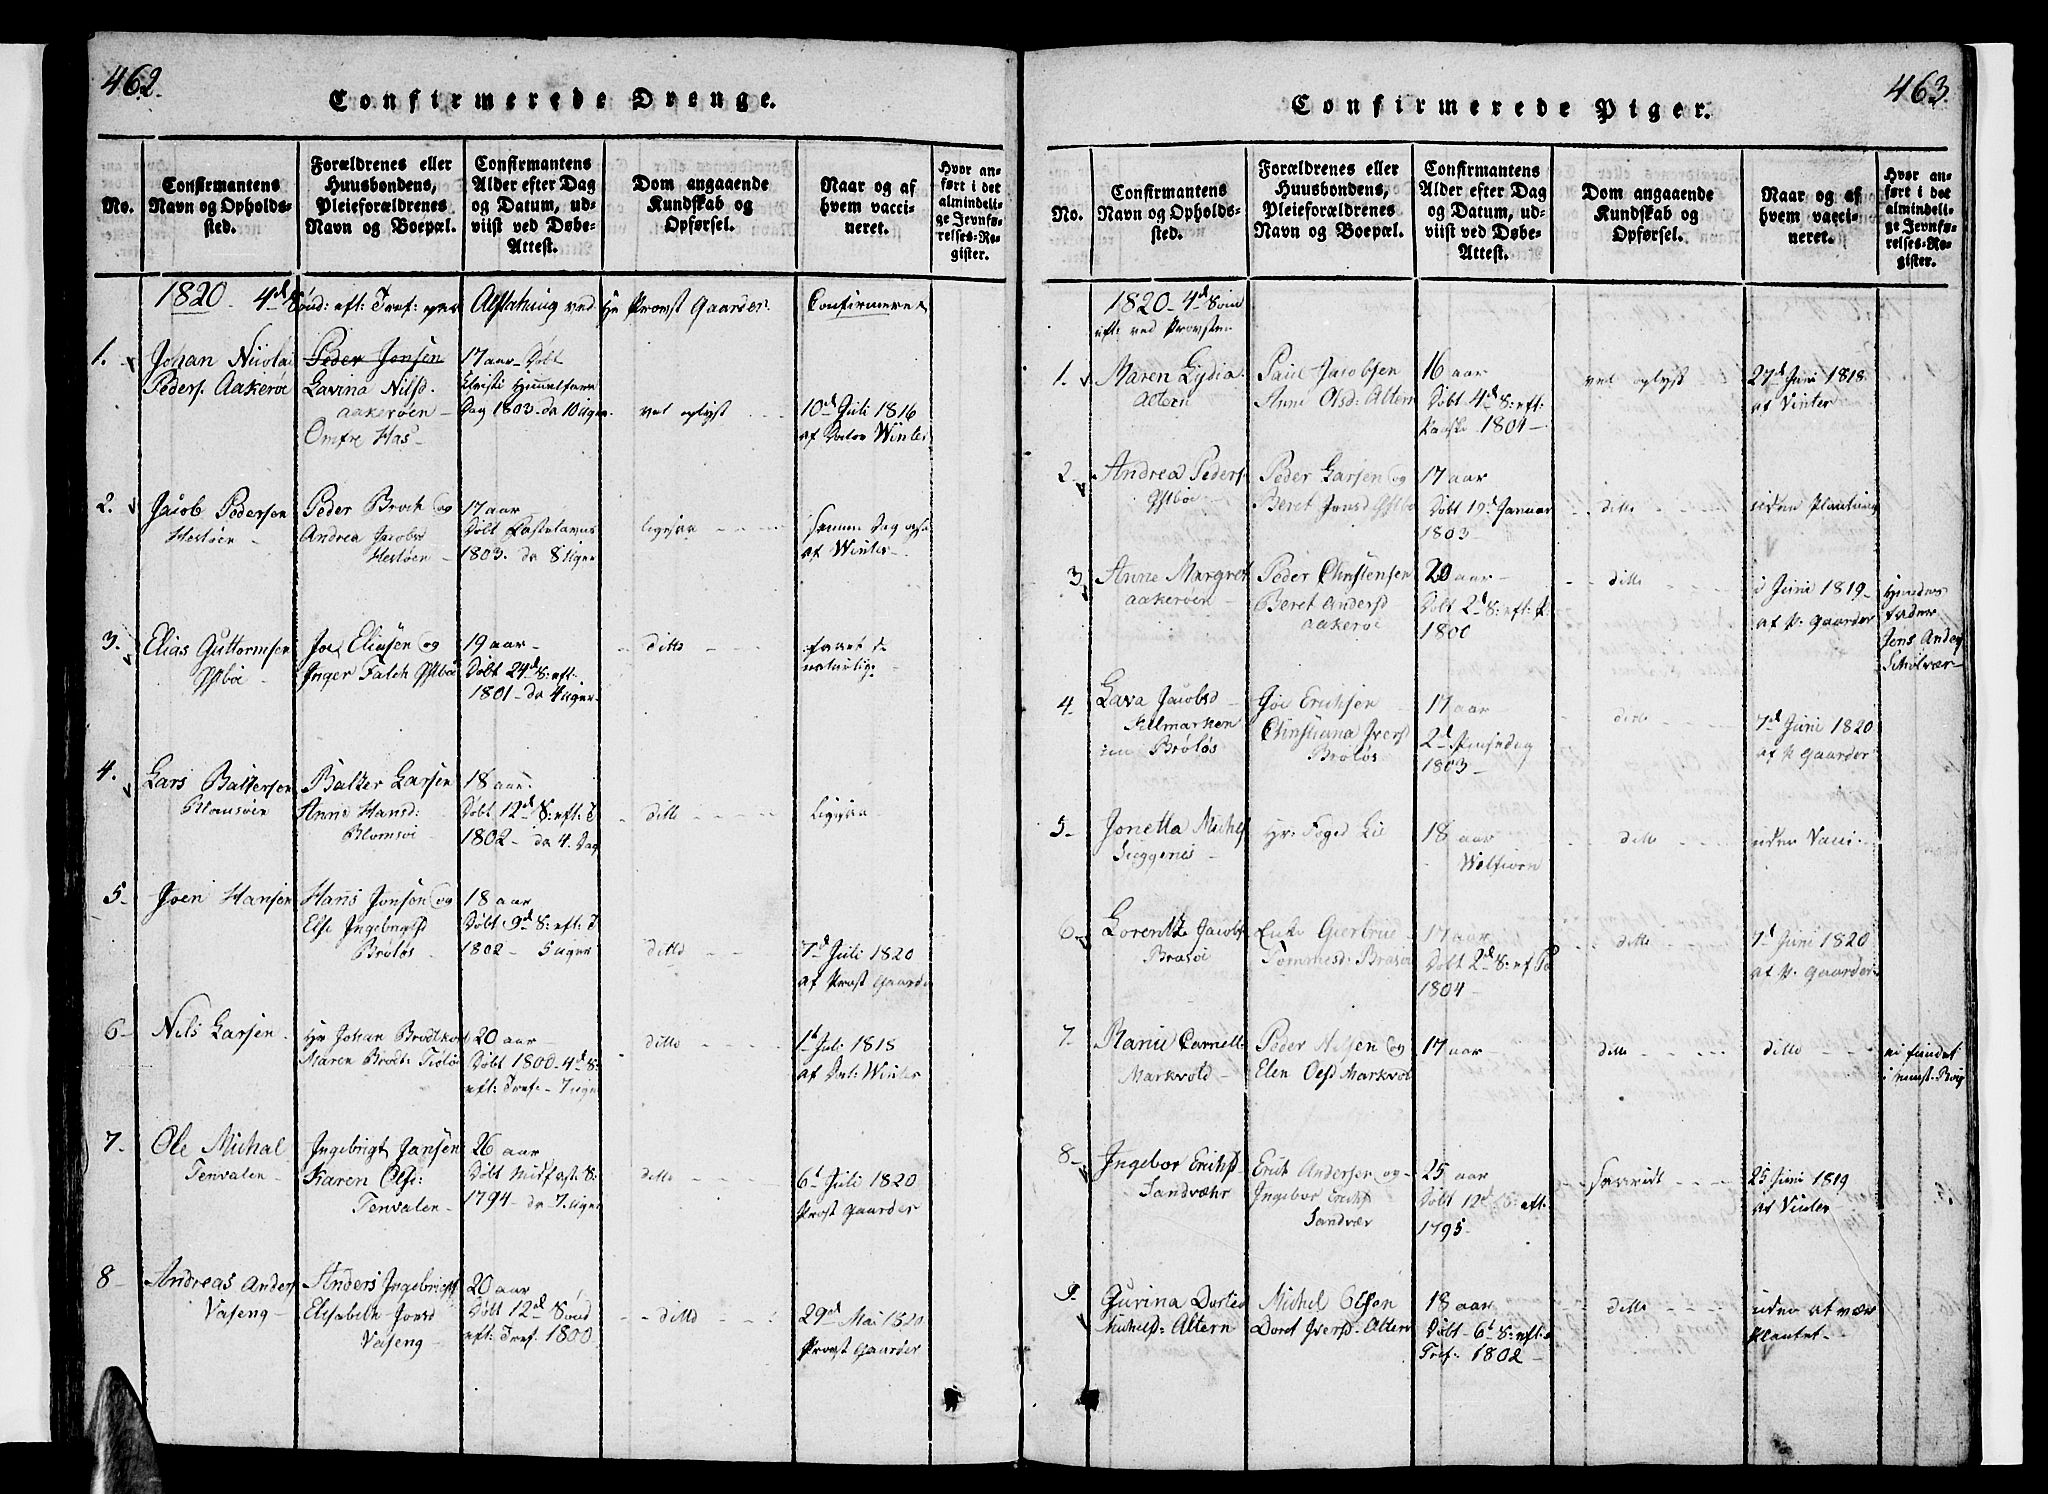 462.
Confirmerede Drenge.
No.
Confirmantens
Navn og Opholds-
sted.
Forældrenes eller
Huusbondens,
Pleieforældrenes
Navn og Boepæl.
Confirmantens
Alder efter Dag
og Datum, ud-
viist ved Døbe-
Attest.
Dom angaaende
Kundskab og
Opførsel.
Naar og af
hvem vacci-
neret.
Hvor an-
ført i det
almindeli-
ge Jevnfø-
relses-Re-
gister.
1820. 4d Sönd: eft: Tref: ved Hr Provst Gaarder Confirmeret
1.
Johan Nicolai
Peders. Aakeröe
Peder Jensen
Lavina Nilsd.
Aakeröen -
Omfre Has -
17 aar - Döbt
Christi Himmelfarts
Dag 1803 - da 10 uger
vel oplyst
10d Juli 1816
af Winter
2.
Jacob Pedersen
Hestöen -
Peder Broch og
Andrea Jacobsd
Hestöen -
17 aar
Döbt Fastelavns
1803. da 8 uger
ligesaa
samme Dag
af Winter -
3.
Elias Guttormsen
Ystböe
Joe Eliasen og
Inger Falch Ystböe
19 aar -
Döbt 24d S: eft:
1801 - da 4 uger
ditto
naturlige
4.
Lars Baltersen
Blomsöen
Balter Larsen
Anne Hansd:
Blomsöe
18 aar.
Döbt 12d S: eft: T
1802 - da 4. Dag
ditto
ligesaa
5 -
Joen Hansen
Hans Jonsen og
Else Ingebrigtsd
Brölös
18 aar
Döbt 9d S: eft: T
1802 - 5 uger
ditto
7d Juli 1820
af Provst Gaarder
6 -
Nils Larsen
Hr Johan Brodtkorb
Maren Broch Tiölöe
20 aar -
Döbt 1800 - 4d S:
eft: Tref: - 7 uger
ditto
1d Juli 1818
af Winter
7.
Ole Michal
Tenvalen -
Ingebrigt Jansen
Karen Olsd:
Tenvalen -
26 aar
Döbt Midfast: S:
1794 - da 7 uger
ditto
6d Juli 1820
Provst Gaarder
8 -
Andreas Anders
Vaseng -
Anders Ingebrigts
Elisabeth Jonsd
Vaseng -
20 aar
Döbt 12d Sönd
eft: Tref: 1800
ditto
29d Mai 1820
Provst Gaarder
463.
Confirmerede Piger.
No.
Confirmantens
Navn og Opholds-
sted.
Forældrenes eller
Huusbondens,
Pleieforældrenes
Navn og Boepæl.
Confirmantens
Alder efter Dag
og Datum, ud-
viist ved Døbe-
Attest.
Dom angaaende
Kundskab og
Opførsel.
Naar og af
hvem vacci-
neret.
Hvor an-
ført i det
almindeli-
ge Jevnfø-
relses-Re-
gister.
1820 - 4d Sön
eft: ved Provsten
1.
Maren Lydia
Altern
Paul Jacobsen
Anne Olsd: Altern
16 aar
Döbt 4d S: eft:
Paaske 1804 -
vel oplyst
27d Juni 1818
af Vinter
2
Andrea Peders
Ystböe -
Peder Larsen og
Beret Jensd Ystböe
17 aar
Döbt 19d Januar
1803 -
ditto
uden Plantning
3
Anne Margret
Aakeröen -
Peder Christensen
Beret Andersd
Aakeröe
20 aar -
Döbt 2d S: eft:
1800
ditto
i Juni 1819 -
af P. Gaarder
Hendes
fader
Jens Anders
Schölvær -
4.
Lava Jacobsd
Brölös
Joe Erichsen
Christiana Iversd
Brölös
17 aar -
2d Pintsedag
1803 -
ditto
7d Juni 1820
af P. Gaarder
5 -
Jonetta Michels
Hr: Foged Lie
18 aar
ditto
uden Vacci
6 -
Lorentze Jacobs
Brasöe
Enke Giertrue
Tommesd: Brasöe
17 aar
Döbt 2d S: ef Pa
1804 -
ditto
7d Juni 1820
af P. Gaarder
7.
Markvold
Peder Nilsen og
Elen Olsd Markvol
17 aar
ditto
ditto
ei fundet
8 -
Ingebor Erichsd
Sandvæhr
Erich Andersen og
Ingebor Erichs
Sandvær
25 aar
Döbt 12d S: eft:
1795 -
25 Juni 1819
af Vinter
9.
Gurina Dortea
Michelsd: Altern
Michel Olsen
Doret Iversd - Altern
18 aar
Döbt - 6d S: eft:
Tref: 1802 -
ditto
uden at vær
Plantet -